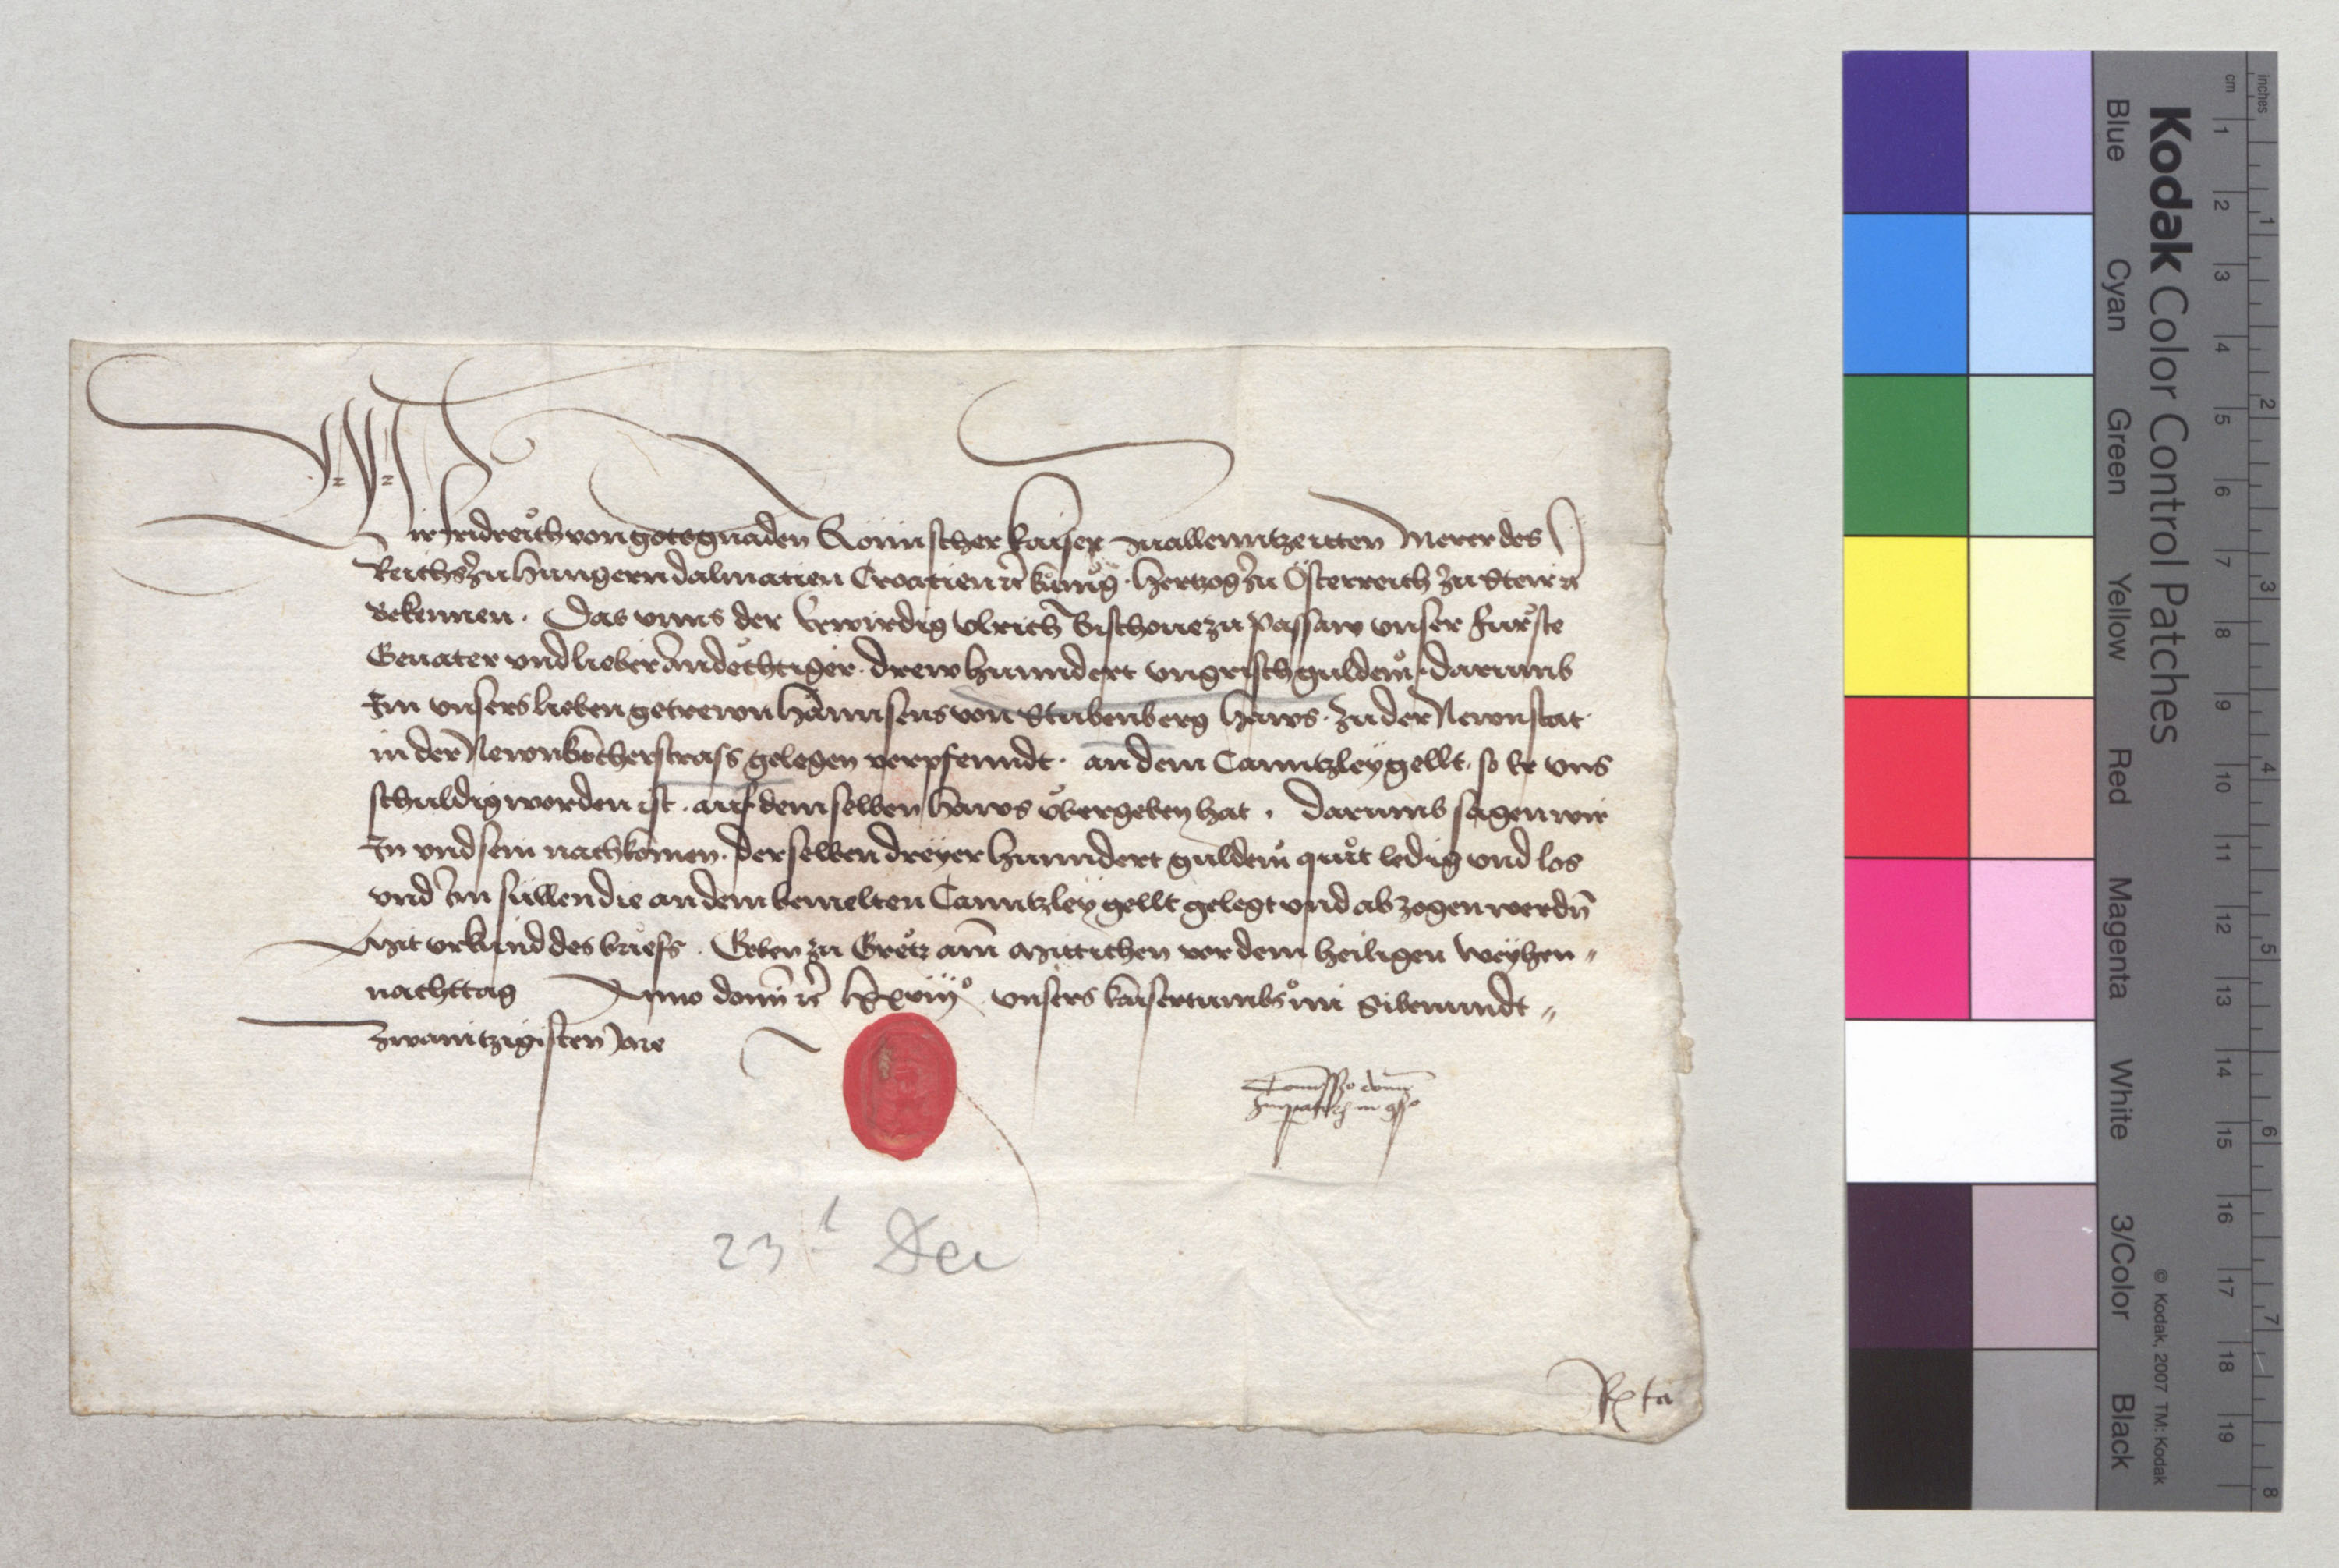 Wir Fridreich von gotsgnaden Römischer kaiser zuallenntzeitten Merer des
Reichs zu Hungern dalmatien Croatien rc̃ kunig. Hertzog zu Österreich zu Steir rc̃
Bekennen. Das vnns der Erwirdig Vlrich Bischoue zu Passaw vnser furste
Geuater vnd lieber Andechtiger. drewhunndert vngrisch guldein. darumb
Im vnsers lieben getrewn Hannsens von Stubenberg Haws. zu der Newnstat
in der Newnkircherstrass gelegen verpfenndt. an dem Canntzleygellt. so Er vns
schuldig worden ist. auf demselben Haws vbergeben hat. Darumb sagen wir
In vnd sein nachkomen. derselben dreyer hunndert guldein quitt ledig vnd los
vnd Im sullen die an dem bemelten Canntzleygellt gelegt vnd abzogen werdñ
Mit vrkund des briefs. Geben zu Gretz am Mittichen vor dem heiligen Weyhen〃
nachttag Anno domĩ rc̃ lxxviijᵒ vnsers kaisertumbs im Sibenundt〃
zwaintzigisten Jare
Cõmissio domĩ
Imperatoris in cons°
23 Dec
Rta
Kodak Color Control Patches
Blue Cyan Green Yellow Red Magenta White 3/Color Black
© Kodak, 2007 TM: Kodak
cm 1 2 3 4 5 6 7 8 9 10 11 12 13 14 15 16 17 18 19
inches 1 2 3 4 5 6 7 8